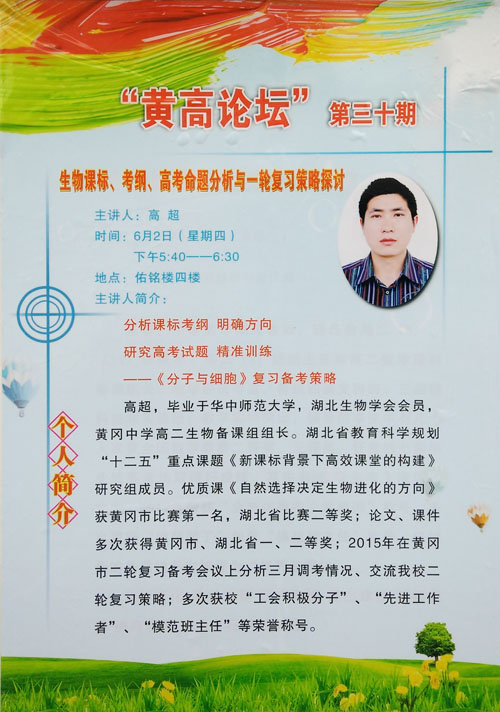 “黄高论坛” 第三十期
生物课标、考纲、高考命题分析与一轮复习策略探讨
主讲人：高 超
时间：6月2日（星期四）
下午5:40——6:30
地点：佑铭楼四楼
主讲人简介：
分析课标考纲 明确方向
研究高考试题 精准训练
——《分子与细胞》复习备考策略
个人简介
高超，毕业于华中师范大学，湖北生物学会会员，
黄冈中学高二生物备课组组长。湖北省教育科学规划
“十二五”重点课题《新课标背景下高效课堂的构建》
研究组成员。优质课《自然选择决定生物进化的方向》
获黄冈市比赛第一名，湖北省比赛二等奖；论文、课件
多次获得黄冈市、湖北省一、二等奖；2015年在黄冈
市二轮复习备考会议上分析三月调考情况、交流我校二
轮复习策略；多次获校“工会积极分子”、“先进工作
者”、“模范班主任”等荣誉称号。